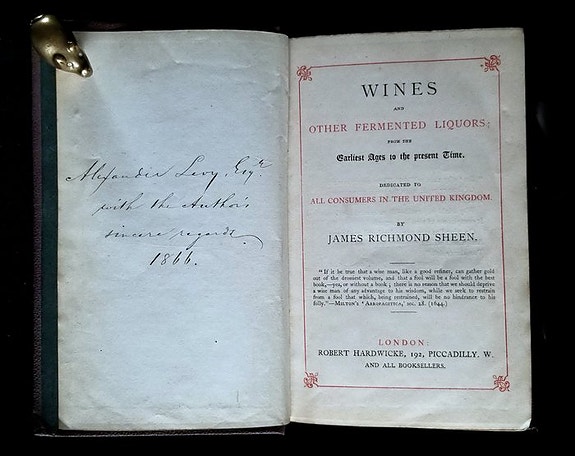 Alexander Levy, Esqre
with the Author's
sincere regards
1866.
WINES
AND
OTHER FERMENTED LIQUORS;
FROM THE
Earliest Ages to the present Time.
DEDICATED TO
ALL CONSUMERS IN THE UNITED KINGDOM.
BY
JAMES RICHMOND SHEEN.
"If it be true that a wise man, like a good refiner, can gather gold
out of the drossiest volume, and that a fool will be a fool with the best
book,—yes, or without a book; there is no reason that we should deprive
a wise man of any advantage to his wisdom, while we seek to restrain
from a fool that which, being restrained, will be no hindrance to his
folly."—MILTON'S 'AREOPAGETICA,' sec. 28. (1644.)
LONDON:
ROBERT HARDWICKE, 192, PICCADILLY, W.
AND ALL BOOKSELLERS.